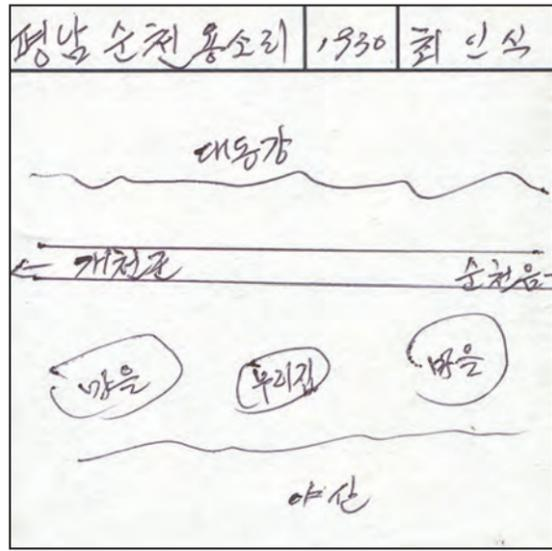 평남 순천 용소리 1930 최인식
대동강
← 개천군 순천읍 →
마을 우리집 마을
야산